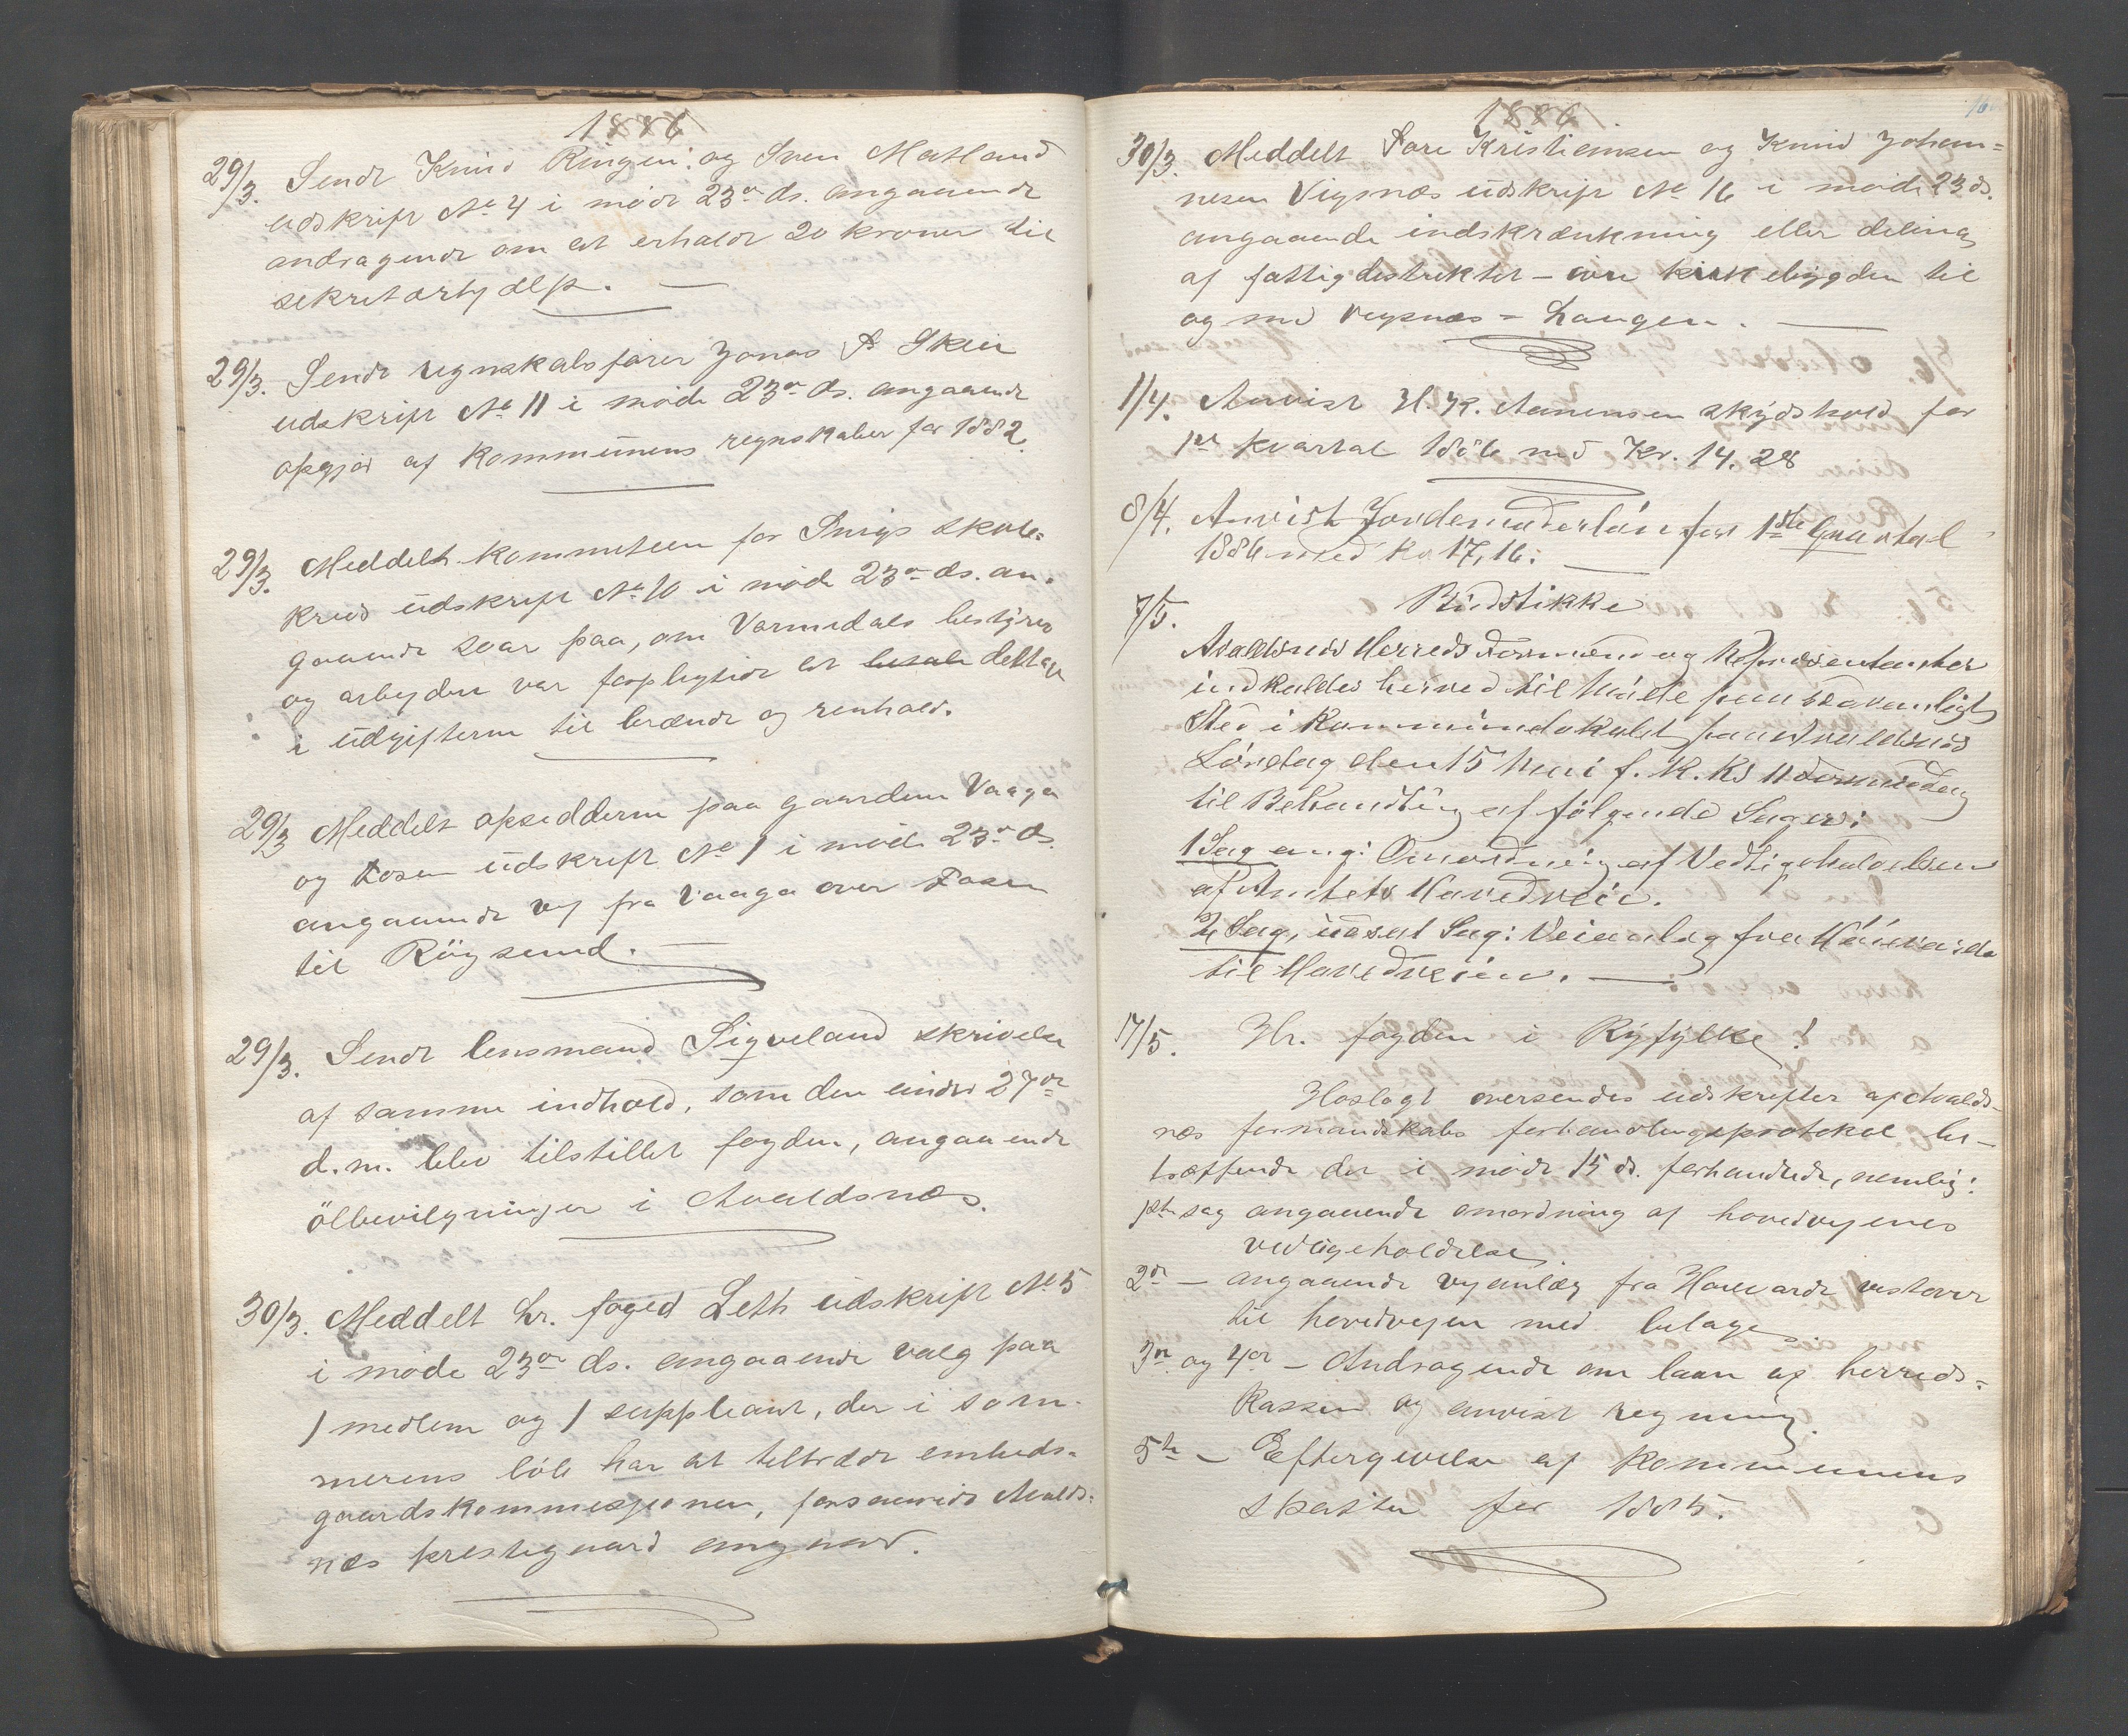 1886
29/3. Sendt Knud Ringen og Sven Matland
udskrift No 4 i møde 23de ds. angaaende
andragende om at erholde 20 kroner til
sekretærhjælp. —
29/3. Sendt regnskabsfører Jonas A Skeie
udskrift No 11 i møde 23de ds. angaaende
opgjør af kommunens regnskaber for 1882.
29/3. Meddelt kommiteen for Snigs skole-
kreds udskrift No 10 i møde 23de ds. an-
gaaende svar paa, om Varmedals bestyrer
og arbeydere var forpligtede at betale deltage
i udgifterne til brænde og renhold.
29/3 Meddelt opsidderne paa gaarden Vaaga
og Fosen udskrift No 1 i møde 23de ds.
angaaende vej fra Vaaga over Fosen
til Röysund. —
29/3. Sendt lensmand Sigveland skrivelse
af samme indhold, som den under 27de
d.m. blev tilstillet fogden, angaaende
ölbevilgninger i Avaldsnæs.
30/3. Meddelt hr. foged Leth udskrift No 5
i møde 23de ds. angaaende valg paa
1 medlem og 1 suppleant, der i som-
merens løb har at tiltræde embeds-
gaardskommissjonen, forsaavidt Avalds-
næs prestegaard angaar.
1886
30/3. Meddelt Tore Kristiansen og Knud Johan-
nesen Vigsnæs udskrift No 16 i møde 23 ds.
angaaende indskrænkning eller deling
af fattigdistriktet — øvre kirkebygden til
og med Vigsnæs = Langen. —
1/4. Anvist H. K. Aanensen skydshold for
1ste kvartal 1886 med Kr. 14.28
8/4. Anvist Jordemoderløn for 1ste Qvartal
1886 med Kr 17,16. —
7/5. Budstikke
Avaldsnæs Herreds Formænd og Repræsentanter
indkaldes herved til Møde paa sædvanligt
Sted i Kommunelokalet paa Avaldsnæs
Lørdag den 15 Mai f. K. Kl 11 Formiddag
til Behandling af følgende Sager:
1 Sag ang: Omordning af Vedligeholdelsen
af Amtets Hovedveie.
2 Sag, udsat Sag: Veianlæg fra Håvarde
til Hovedveien. —
17/5. Hr. fogden i Ryfylke!
Hoslagt oversendes udskrifter af Avalds-
næs formandskabs forhandlingsprotokol be-
træffende de i møde 15 ds. forhandlede, nemlig:
1ste sag angaaende omordning af hovedvejenes
vedligeholdelse
2de — angaaende vejanlæg fra Havarde vestover
til hovedvejen med belage
3de og 4de — Andragende om laan af herreds-
kassen og anvist regning.
5te — Eftergivelse af kommunens
skatter for 1885.